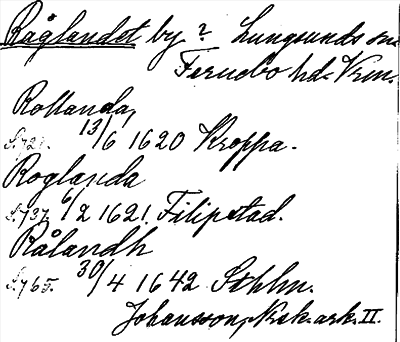 Råglandet by? Lungsunds sn
Fernebo hd. Vrm.
Rollanda
S. 721. 13/6 1620 Kroppa.
Roglanda
S. 737. 6/2 1621. Filipstad.
Rålandh
S. 765. 30/4 1642 Sthlm.
Johansson, Noraskog. ark. II.